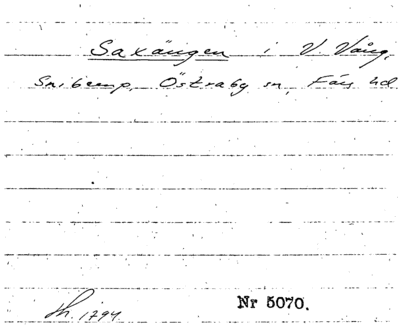 Saxängen i V. Vång,
Snibemp, Östraby sn, Färs hd
Sk. 1794.
Nr 5070.